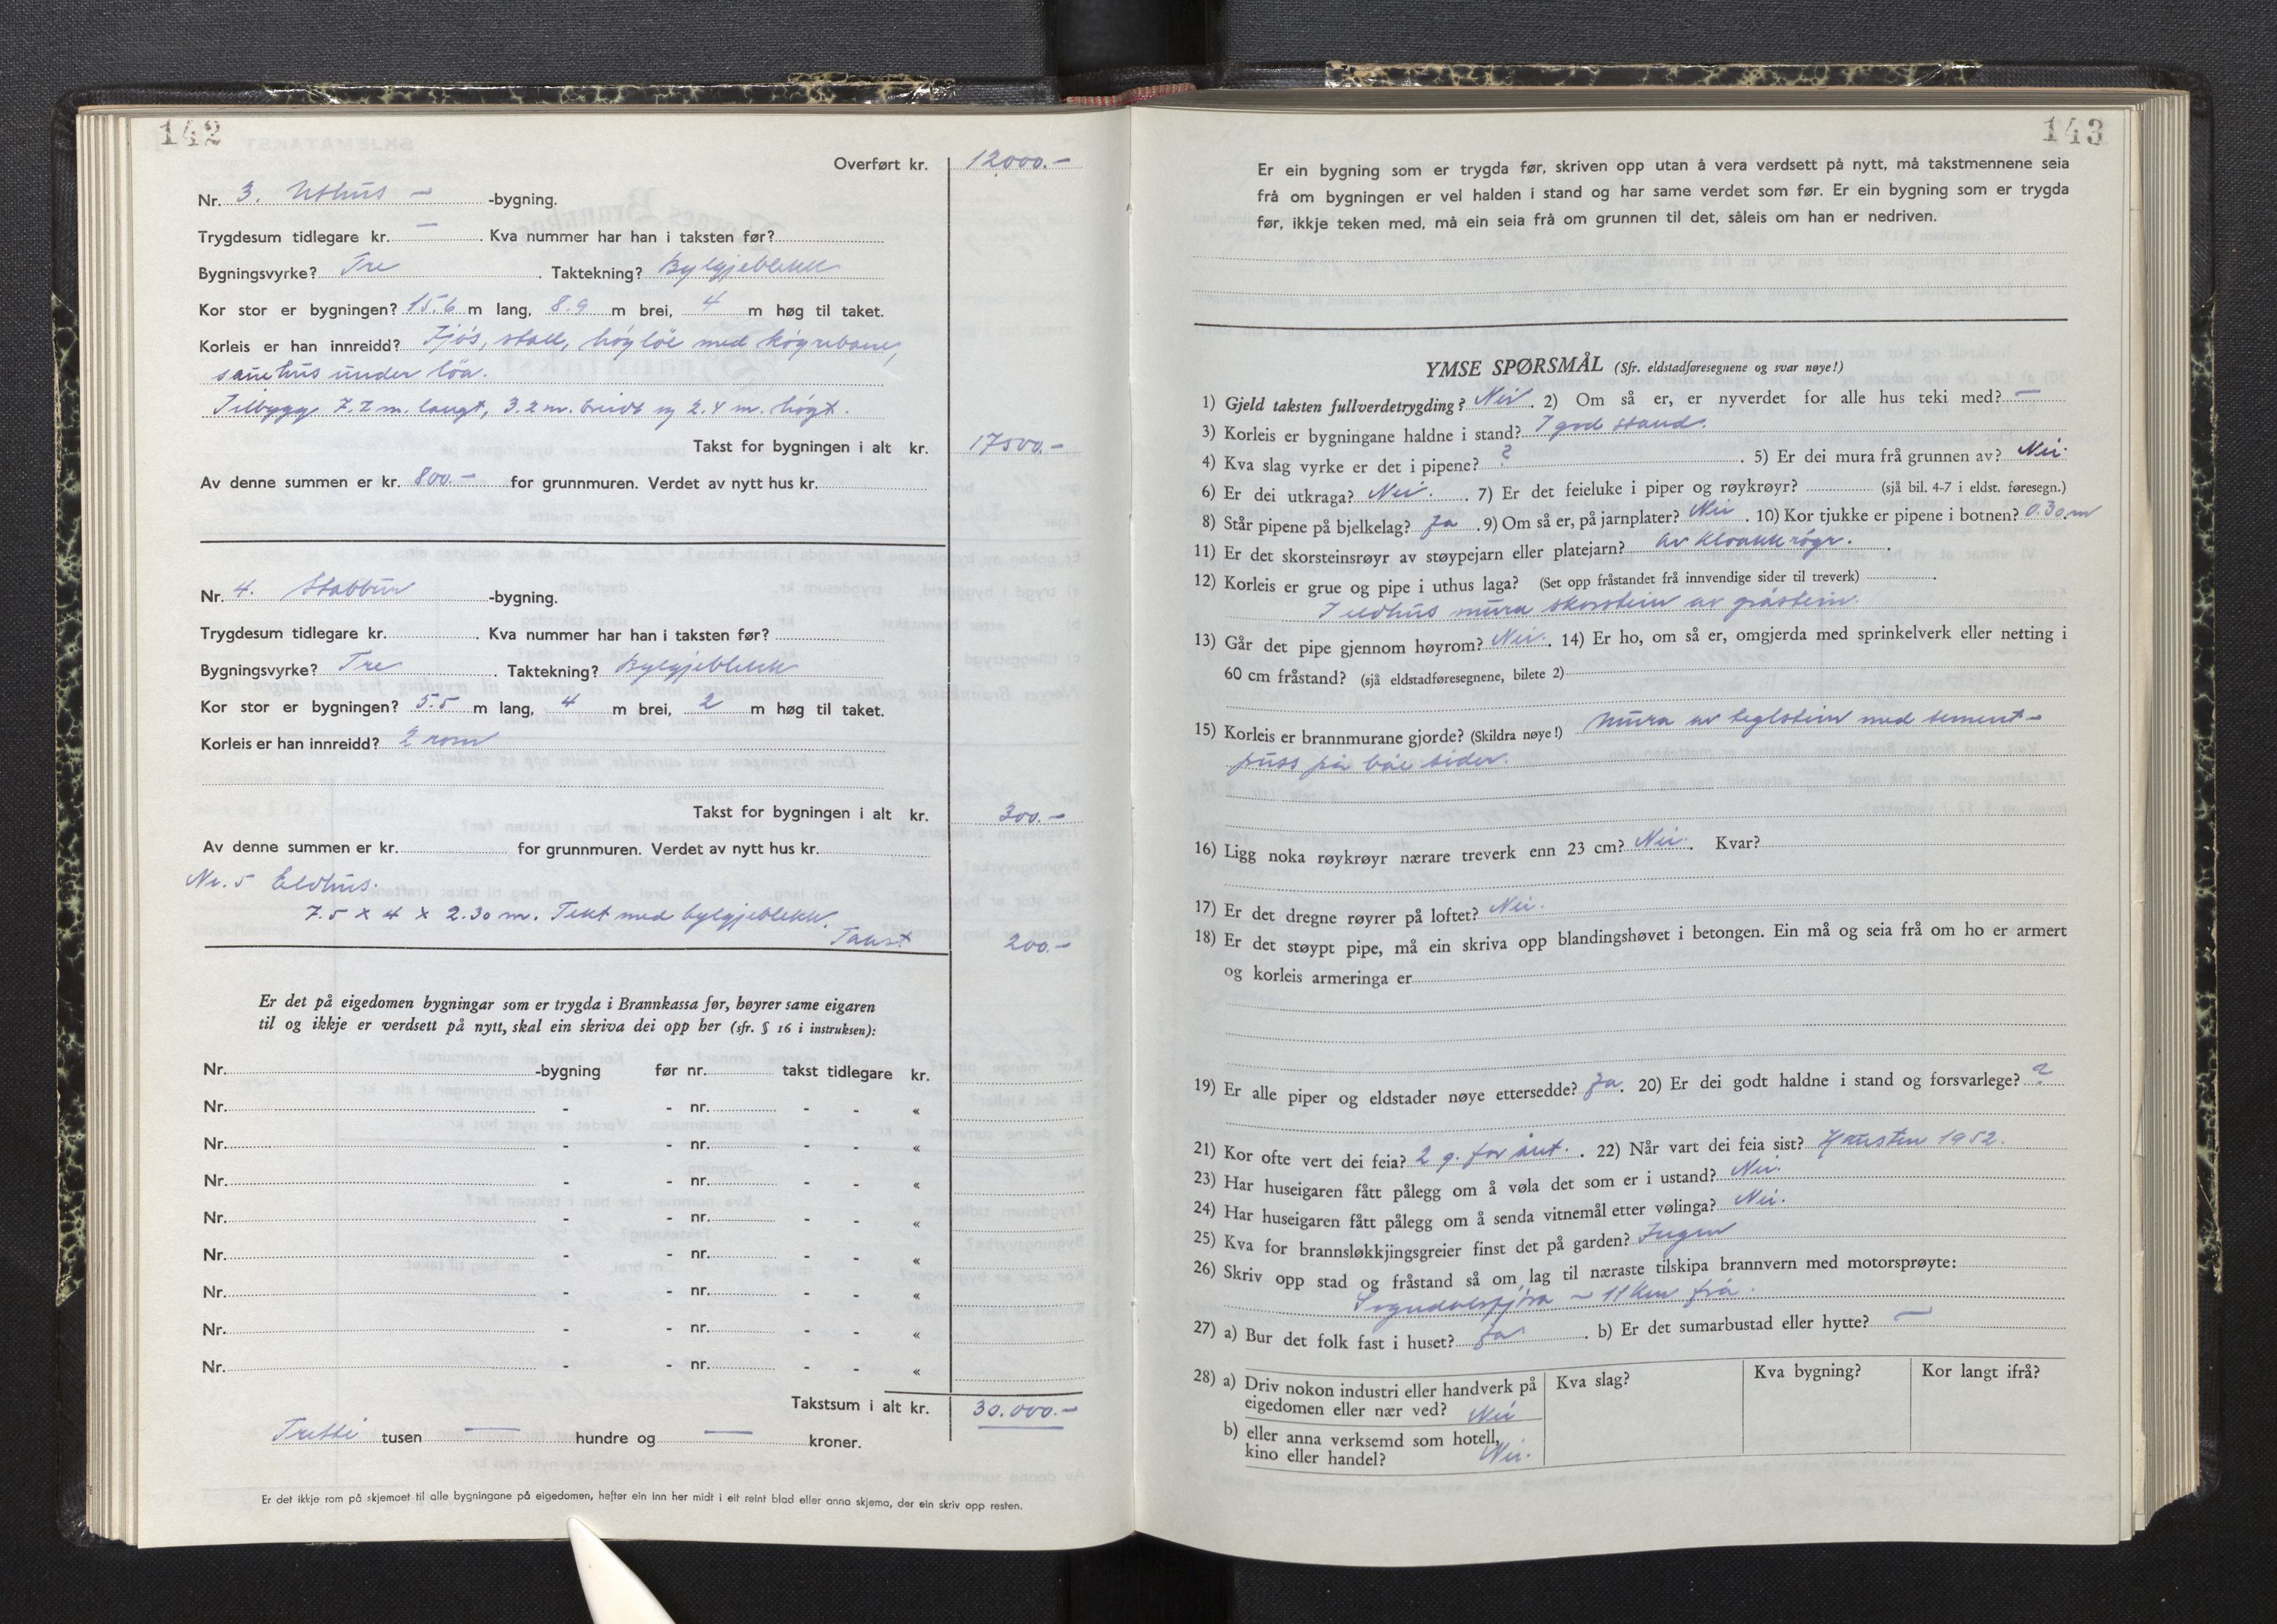 142
Overført kr. 12000.-
Nr. 3. Uthus - -bygning.
Trygdesum tidlegare kr. - . Kva nummer har han i taksten før?
Bygningsvyrke? Tre . Taktekning? Bylgjeblekk
Kor stor er bygningen? 15.6 m lang, 8.9 m brei, 4 m høg til taket.
Korleis er han innreidd? Fjós, stall, höyløe med köyrebane,
sauehus under löa.
Tilbygg 7.2 m. langt, 3.2 m. breidt og 2.4 m. högt.
Takst for bygningen i alt kr. 17500.-
Av denne summen er kr. 800.- for grunnmuren. Verdet av nytt hus kr.
Nr. 4. Stabbur -bygning.
Trygdesum tidlegare kr. . Kva nummer har han i taksten før?
Bygningsvyrke? Tre . Taktekning? Bylgjeblekk
Kor stor er bygningen? 5.5 m lang, 4 m brei, 2 m høg til taket.
Korleis er han innreidd? 2 rom
Takst for bygningen i alt kr. 300.-
Av denne summen er kr. for grunnmuren. Verdet av nytt hus kr.
Nr. 5 Eldhus.
7.5 x 4 x 2.30 m. Tekt med bylgjeblekk.
Takst 200.-
Er det på eigedomen bygningar som er trygda i Brannkassa før, høyrer same eigaren
til og ikkje er verdsett på nytt, skal ein skriva dei opp her (sfr. § 16 i instruksen):
Nr. -bygning før nr. takst tidlegare kr.
Nr. - - nr. - - «
Nr. - - nr. - - «
Nr. - - nr. - - «
Nr. - - nr. - - «
Nr. - - nr. - - «
Nr. - - nr. - - «
Nr. - - nr. - - «
Nr. - - nr. - - «
Takstsum i alt kr. 30.000.-
Tretti tusen — hundre og — kroner.
Er det ikkje rom på skjemaet til alle bygningane på eigedomen, hefter ein inn her midt i eit reint blad eller anna skjema, der ein skriv opp resten.
143
Er ein bygning som er trygda før, skriven opp utan å vera verdsett på nytt, må takstmennene seia
frå om bygningen er vel halden i stand og har same verdet som før. Er ein bygning som er trygda
før, ikkje teken med, må ein seia frå om grunnen til det, såleis om han er nedriven.
YMSE SPØRSMÅL (Sfr. eldstadføresegnene og svar nøye!)
1) Gjeld taksten fullverdetrygding? Nei . 2) Om så er, er nyverdet for alle hus teki med? —
3) Korleis er bygningane haldne i stand? I god stand.
4) Kva slag vyrke er det i pipene? ? . 5) Er dei mura frå grunnen av? Nei.
6) Er dei utkraga? Nei. . 7) Er det feieluke i piper og røykrøyr? (sjå bil. 4-7 i eldst. føresegn.)
8) Står pipene på bjelkelag? Ja . 9) Om så er, på jarnplater? Nei . 10) Kor tjukke er pipene i botnen? 0.30.m
11) Er det skorsteinsrøyr av støypejarn eller platejarn? Av kloakkröyr. .
12) Korleis er grue og pipe i uthus laga? (Set opp fråstandet frå innvendige sider til treverk) .
I eldhus mura skorstein av gråstein.
13) Går det pipe gjennom høyrom? Nei. . 14) Er ho, om så er, omgjerda med sprinkelverk eller netting i
60 cm fråstand? (sjå eldstadføresegnene, bilete 2)
15) Korleis er brannmurane gjorde? (Skildra nøye!) Mura av teglstein med sement-
puss på båe sider.
16) Ligg noka røykrøyr nærare treverk enn 23 cm? Nei. . Kvar?
17) Er det dregne røyrer på loftet? Nei.
18) Er det støypt pipe, må ein skriva opp blandingshøvet i betongen. Ein må og seia frå om ho er armert
og korleis armeringa er
19) Er alle piper og eldstader nøye ettersedde? Ja. 20) Er dei godt haldne i stand og forsvarlege? ?
21) Kor ofte vert dei feia? 2 g. for året. . 22) Når vart dei feia sist? Hausten 1952.
23) Har huseigaren fått pålegg om å vøla det som er i ustand? Nei.
24) Har huseigaren fått pålegg om å senda vitnemål etter vølinga? Nei.
25) Kva for brannsløkkjingsgreier finst det på garden? Ingen
26) Skriv opp stad og fråstand så om lag til næraste tilskipa brannvern med motorsprøyte:
Sogndalsfjöra - 11 km frå.
27) a) Bur det folk fast i huset? Ja . b) Er det sumarbustad eller hytte? —
28) a) Driv nokon industri eller handverk på eigedomen eller nær ved? Nei
Kva slag? Kva bygning? Kor langt ifrå?
b) eller anna verksemd som hotell,
kino eller handel? Nei.